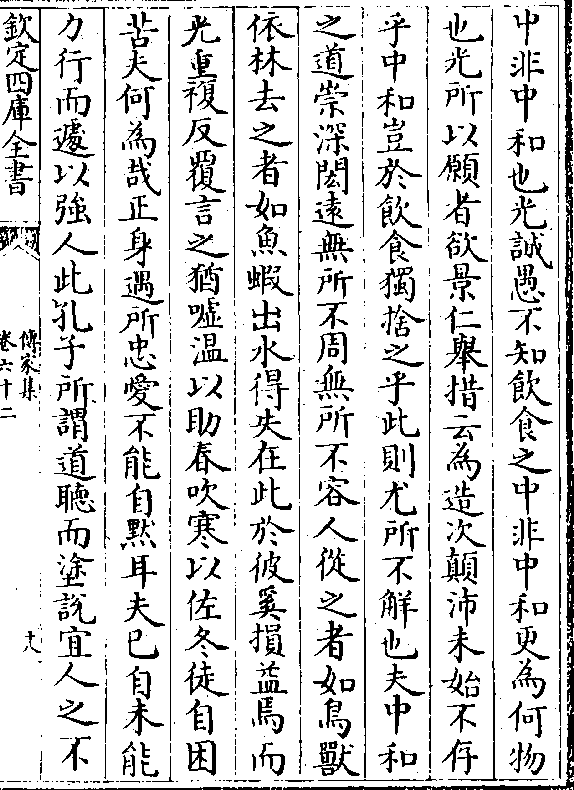 中非中和也光誠愚不知飲食之中非中和更為何物
也光所以願者欲景仁舉措云為造次顛沛未始不存
乎中和豈於飲食獨捨之乎此則尤所不解也夫中和
之道崇深閎遠無所不周無所不容人從之者如鳥獸
依林去之者如魚蝦出水得失在此於彼奚損益焉而
光重複反覆言之猶嘘温以助春吹寒以佐冬徒自困
苦夫何為哉正身遇所忠愛不能自默耳夫已自未能
力行而遽以強人此孔子所謂道聽而塗説宜人之不
欽定四庫全書
傳家集
卷六十二
十八